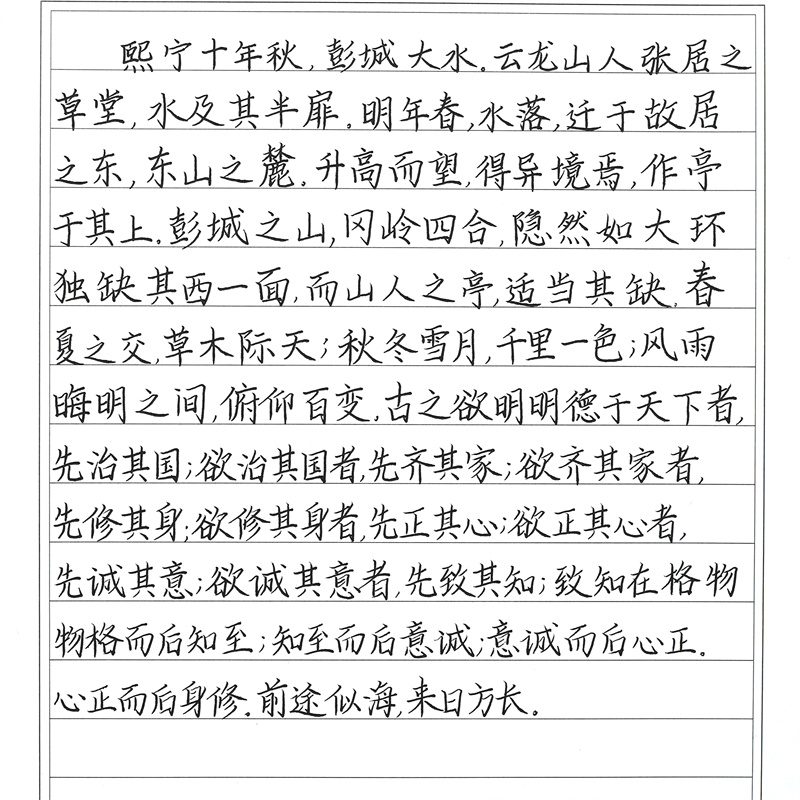 熙宁十年秋,彭城大水。云龙山人张居之
草堂,水及其半扉。明年春,水落,迁于故居
之东,东山之麓。升高而望,得异境焉,作亭
于其上。彭城之山,冈岭四合,隐然如大环
独缺其西一面,而山人之亭,适当其缺。春
夏之交,草木际天;秋冬雪月,千里一色;风雨
晦明之间,俯仰百变。古之欲明明德于天下者,
先治其国;欲治其国者,先齐其家;欲齐其家者,
先修其身;欲修其身者,先正其心;欲正其心者,
先诚其意;欲诚其意者,先致其知;致知在格物
物格而后知至;知至而后意诚;意诚而后心正。
心正而后身修。前途似海,来日方长。